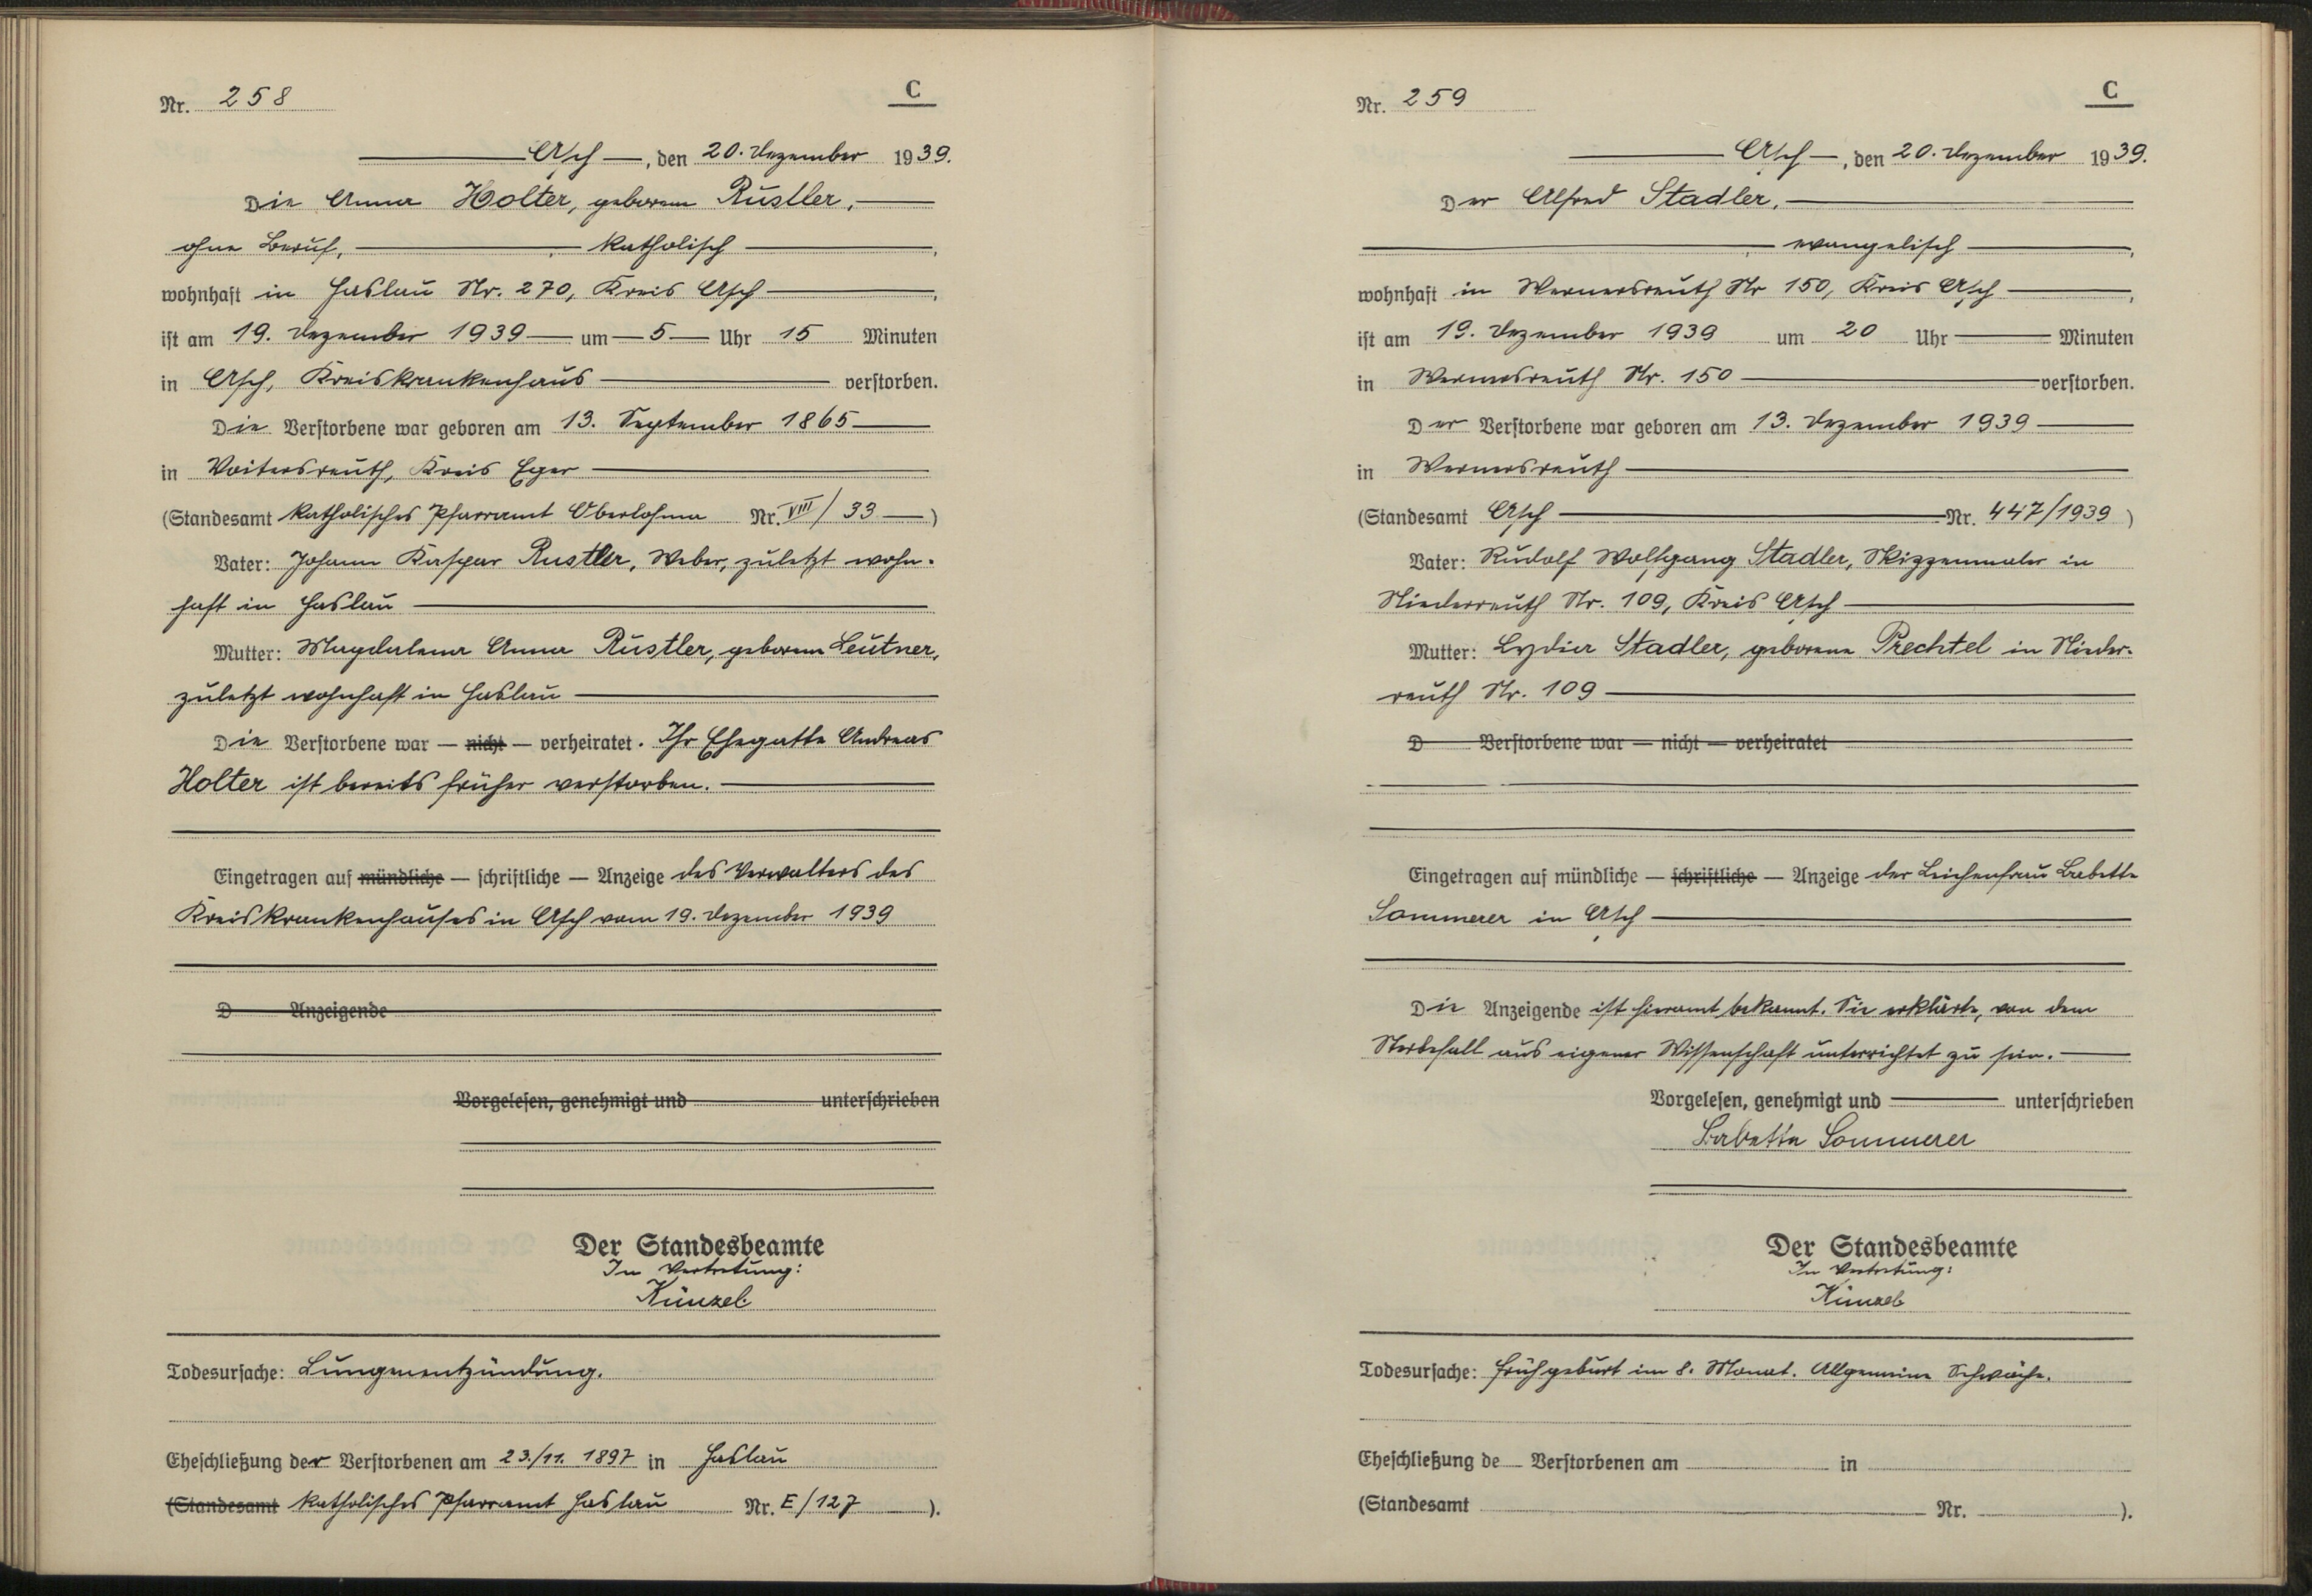 Nr. 258
C
Asch, den 20. Dezember 1939.
Die Anna Holter, geborene Rustler,
ohne Beruf, katholisch,
wohnhaft in Haslau Nr. 270, Kreis Asch,
ist am 19. Dezember 1939 um 5 Uhr 15 Minuten
in Asch, Kreiskrankenhaus verstorben.
Die Verstorbene war geboren am 13. September 1865
in Voitersreuth, Kreis Eger
(Standesamt katholisches Pfarramt Oberlohma Nr. VIII/33)
Vater: Johann Kaspar Rustler, Weber, zuletzt wohn-
haft in Haslau
Mutter: Magdalena Anna Rustler, geborene Leutner,
zuletzt wohnhaft in Haslau
Die Verstorbene war — nicht — verheiratet. Ihr Ehegatte Andreas
Holter ist bereits früher verstorben.
Eingetragen auf mündliche — schriftliche — Anzeige des Verwalters des
Kreiskrankenhauses in Asch vom 19. Dezember 1939
D Anzeigende
Vorgelesen, genehmigt und unterschrieben
Der Standesbeamte
In Vertretung:
Künzel
Todesursache: Lungenentzündung.
Eheschließung der Verstorbenen am 23./11. 1897 in Haslau
(Standesamt katholisches Pfarramt Haslau Nr. E/127).
Nr. 259
C
Asch, den 20. Dezember 1939.
Der Alfred Stadler,
evangelisch,
wohnhaft in Wernersreuth Nr 150, Kreis Asch,
ist am 19. Dezember 1939 um 20 Uhr Minuten
in Wernersreuth Nr. 150 verstorben.
Der Verstorbene war geboren am 13. Dezember 1939
in Wernersreuth
(Standesamt Asch Nr. 447/1939)
Vater: Rudolf Wolfgang Stadler, Skizzenmaler in
Niederreuth Nr. 109, Kreis Asch
Mutter: Lydia Stadler, geborene Prechtel in Nieder-
reuth Nr. 109
D Verstorbene war — nicht — verheiratet
Eingetragen auf mündliche — schriftliche — Anzeige der Leichenfrau Babette
Sommerer in Asch
Die Anzeigende ist hieramt bekannt. Sie erklärte, von dem
Sterbefall aus eigener Wissenschaft unterrichtet zu sein.
Vorgelesen, genehmigt und unterschrieben
Babette Sommerer
Der Standesbeamte
In Vertretung:
Künzel
Todesursache: Frühgeburt im 8. Monat. Allgemeine Schwäche.
Eheschließung de Verstorbenen am in
(Standesamt Nr. ).